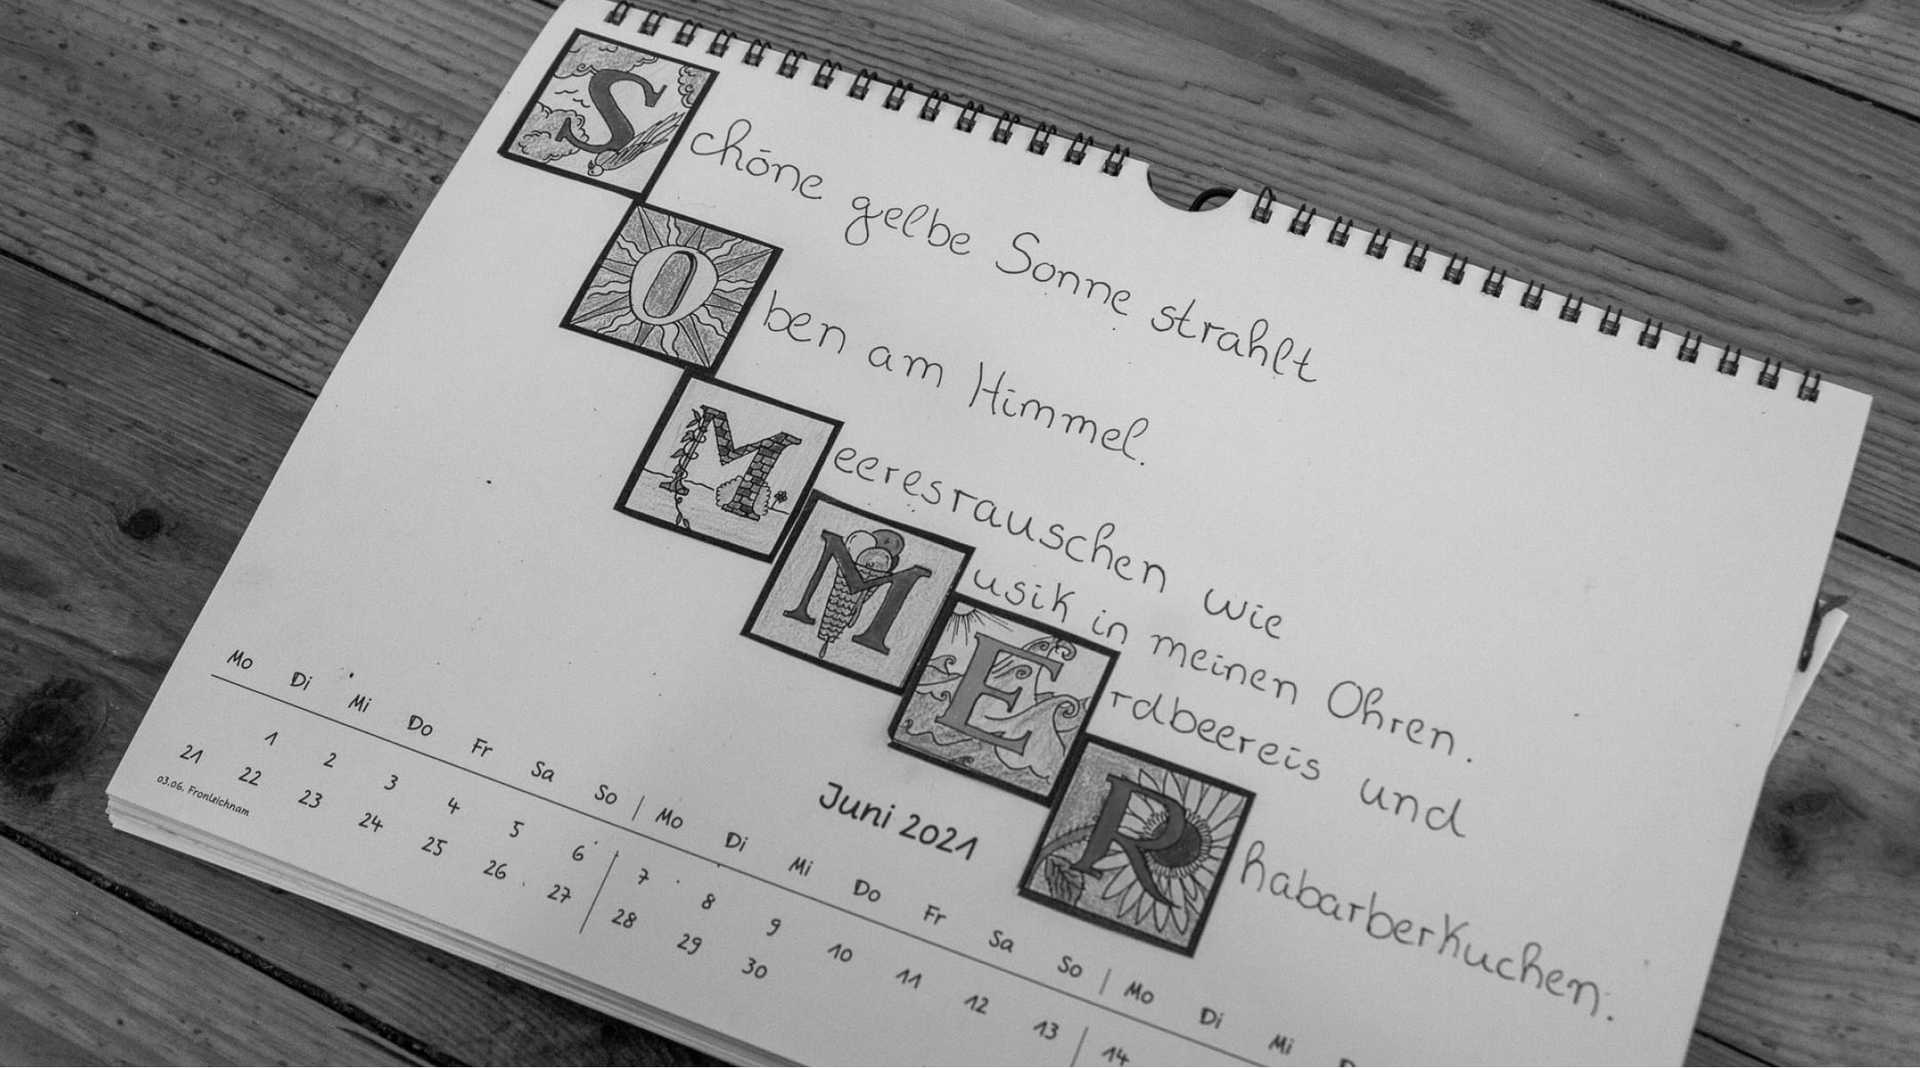 Schöne gelbe Sonne strahlt
Oben am Himmel.
Meeresrauschen wie
Musik in meinen Ohren.
Erdbeereis und
Rhabarberkuchen.
Juni 2021
Mo Di Mi Do Fr Sa So | Mo Di Mi Do Fr Sa So | Mo Di Mi
1 2 3 4 5 6 7 8 9 10 11 12 13 14
21 22 23 24 25 26 27 28 29 30
03.06. Fronleichnam